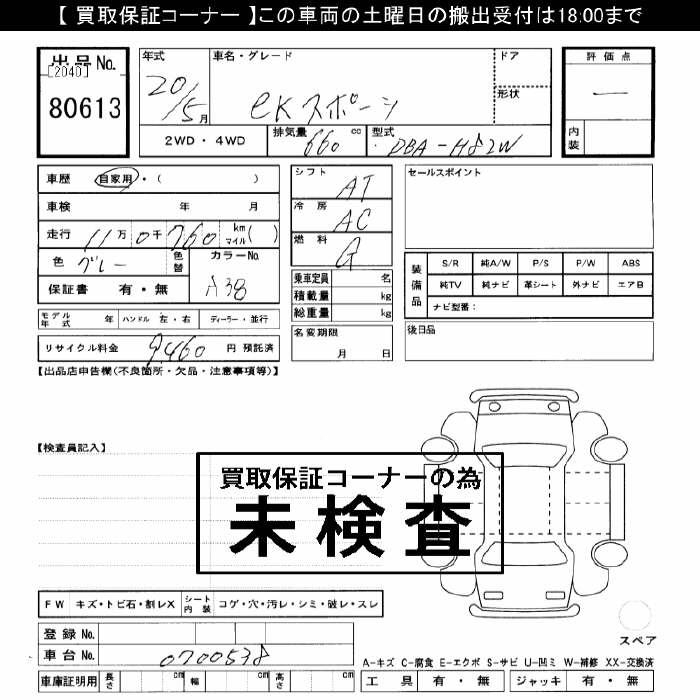 【 買取保証コーナー 】この車両の土曜日の搬出受付は18:00まで
出品No.
[2040]
80613
年式
20/5月
車名・グレード
eKスポーツ
ドア
形状
評価点
—
内装
2WD・4WD
排気量
660 cc
型式
DBA-H82W
車歴 自家用・( )
車検 年 月
走行 11万0千760 km マイル( )
色 グレー
色替
カラーNo.
A38
保証書 有・無
シフト
AT
冷房
AC
燃料
G
乗車定員 名
積載量 kg
総重量 kg
セールスポイント
装備品
S/R 純A/W P/S P/W ABS
純TV 純ナビ 革シート 外ナビ エアB
ナビ型番:
モデル年式 年 ハンドル 左・右 ディーラー・並行
リサイクル料金 9,460 円 預託済
名変期限
月 日
後日品
【出品店申告欄(不良箇所・欠品・注意事項等)】
【検査員記入】
買取保証コーナーの為
未検査
FW キズ・トビ石・割レX シート内装 コゲ・穴・汚レ・シミ・破レ・スレ
登録No.
車台No. 0700538
スペア
車庫証明用 長さ cm 幅 cm 高さ cm
A-キズ C-腐食 E-エクボ S-サビ U-凹ミ W-補修 XX-交換済
工具 有・無 ジャッキ 有・無